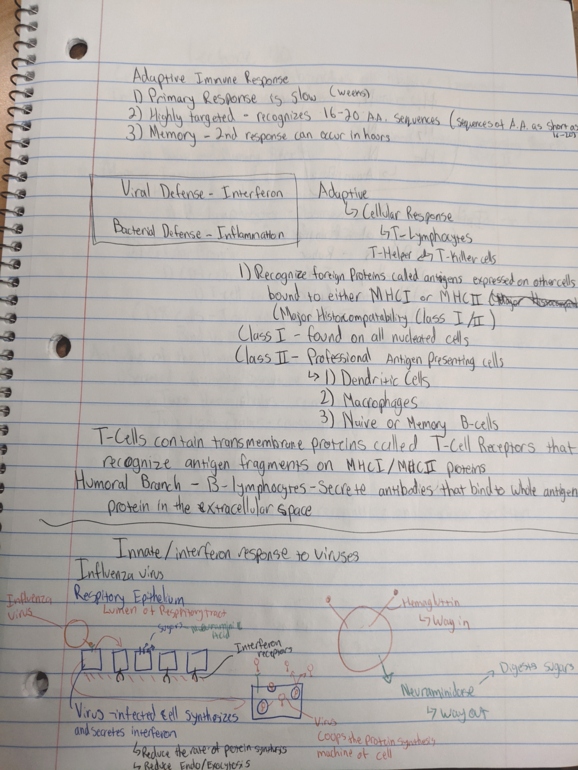 Adaptive Immune Response
1) Primary Response is slow (weeks)
2) Highly targeted - recognizes 16-20 A.A. sequences (sequences of A.A. as short as 16-20)
3) Memory - 2nd response can occur in hours
Viral Defense - Interferon
Bacterial Defense - Inflammation
Adaptive
↳ Cellular Response
↳ T-Lymphocytes
T-Helper ↲ ↳ T-Killer cells
1) Recognize foreign Proteins called antigens expressed on other cells
bound to either MHC I or MHC II
(Major Histocompatability Class I/II)
Class I - found on all nucleated cells
Class II - Professional Antigen Presenting cells
↳ 1) Dendritic Cells
2) Macrophages
3) Naive or Memory B-cells
T-Cells contain transmembrane proteins called T-Cell Receptors that
recognize antigen fragments on MHCI/MHCII proteins
Humoral Branch - B-lymphocytes - Secrete antibodies that bind to whole antigen
protein in the extracellular space
Innate/interferon response to viruses
Influenza virus
Respitory Epithelium
Influenza virus
Lumen of Respitory tract
sugars
acid
Interferon receptors
Hemaglutin
↳ Way in
Neuraminidase
→ Digests sugars
↳ Way out
Virus-infected cell synthesizes
and secretes interferon
↳ Reduce the rate of protein synthesis
↳ Reduce Endo/Exocytosis
Virus
Coops the protein synthesis
machine of cell